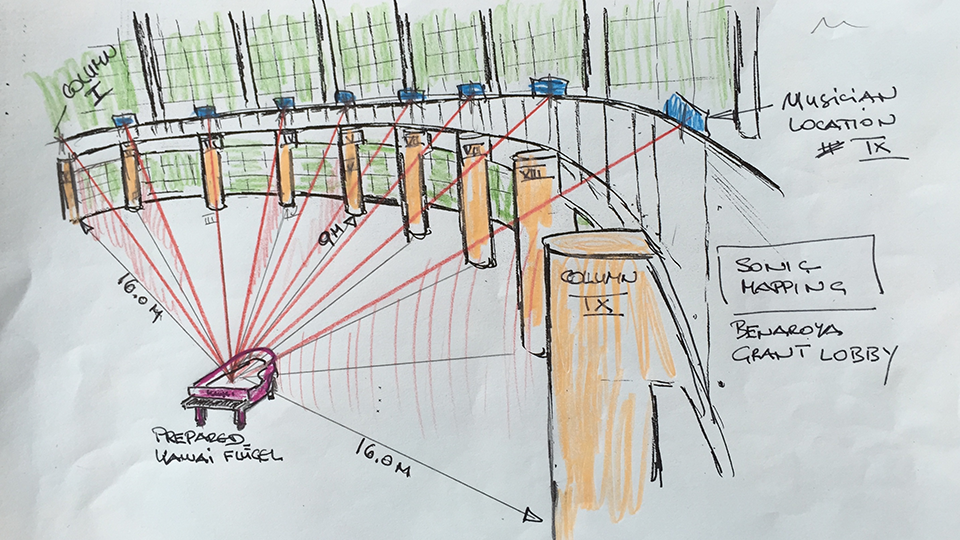 COLUMN
I
MUSICIAN
LOCATION
# IX
III
IV
VIII
9M
16.0M
COLUMN
IX
SONIC
MAPPING
BENAROYA
GRANT LOBBY
PREPARED
KAWAI FLÜGEL
16.0M